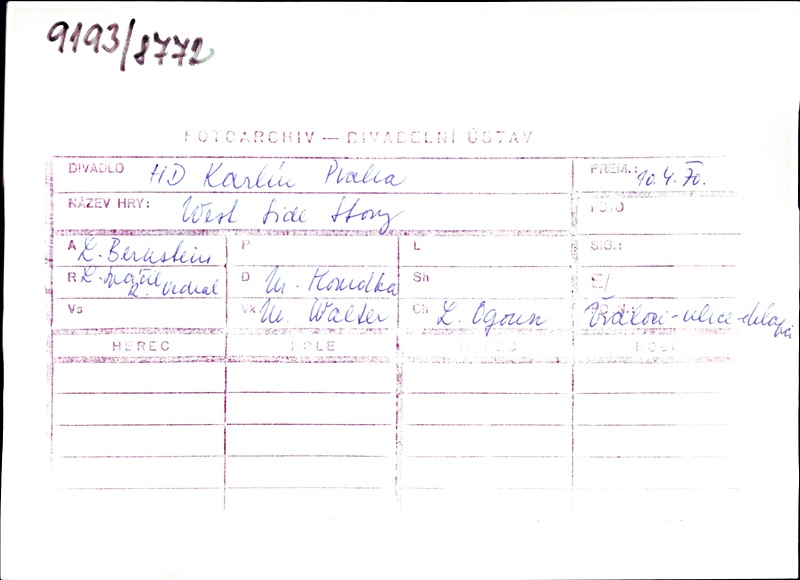 9193/8772
FOTOARCHIV — DIVADELNÍ ÚSTAV
DIVADLO HD Karlín Praha PREM.: 10.4.70.
NÁZEV HRY: West Side Story FOTO
A L. Bernstein P L SIG.:
R L. K. Vedral D M. Homolka Sh
Vs Vk M. Walter Ch L. Ogoun ulice
HEREC ROLE HEREC ROLE